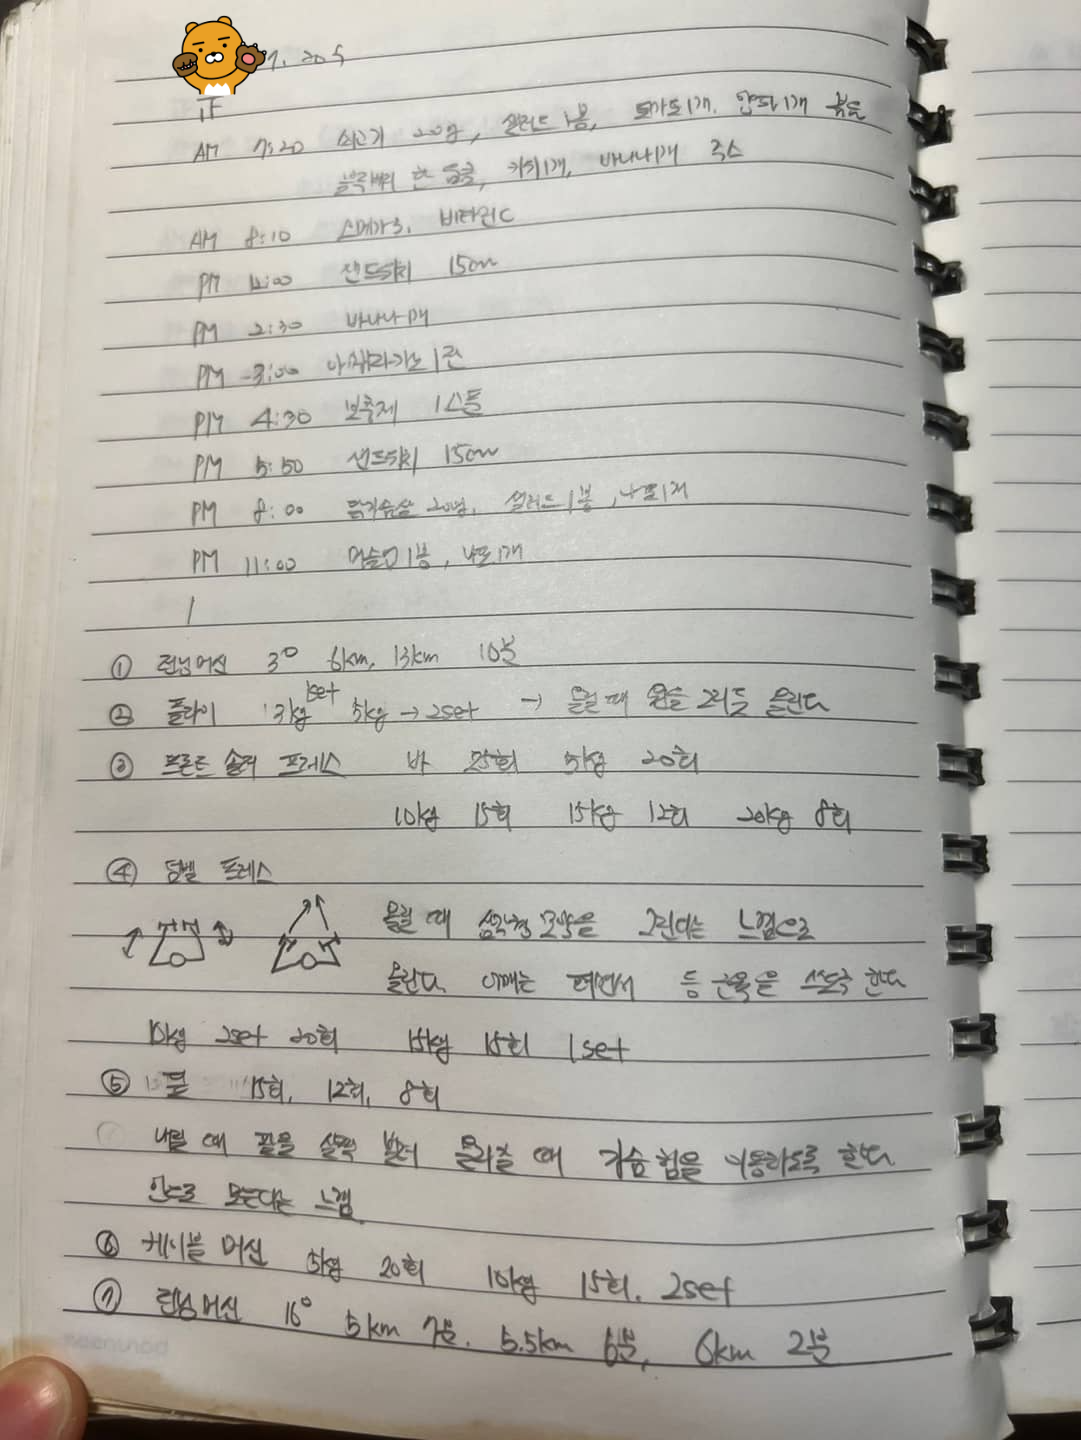 7. 205
正
AM 7:20 쇠고기 20g, 샐러드 1봉, 토마토1개, 양파1개 볶음
블랙베리 한 움큼, 키위1개, 바나나1개 주스
AM 8:10 오메가3, 비타민C
PM 12:00 샌드위치 15cm
PM 2:30 바나나1개
PM 3:00 아메리카노 1잔
PM 4:30 보충제 1스푼
PM 5:50 샌드위치 15cm
PM 8:00 닭가슴살 20g, 샐러드 1봉, 낫또1개
PM 11:00 머슬밀1봉, 낫또1개
① 런닝머신 3° 6km, 13km 10분
② 플라이 3kg 1set 5kg → 2set → 올릴 때 원을 그리듯 올린다
③ 프론트 숄더 프레스 바 25회 5kg 20회
10kg 15회 15kg 12회 20kg 8회
④ 덤벨 프레스
올릴 때 삼각형 모양을 그린다는 느낌으로
올린다. 어깨는 펴면서 등 근육을 쓰도록 한다
10kg 2set 20회 15kg 15회 1set
⑤ 15회, 12회, 8회
내릴 때 팔을 살짝 벌려 올라올 때 가슴 힘을 이용하도록 한다
안으로 모은다는 느낌
⑥ 케이블 머신 5kg 20회 10kg 15회, 2set
⑦ 런닝머신 16° 5km 7분, 5.5km 6분, 6km 2분